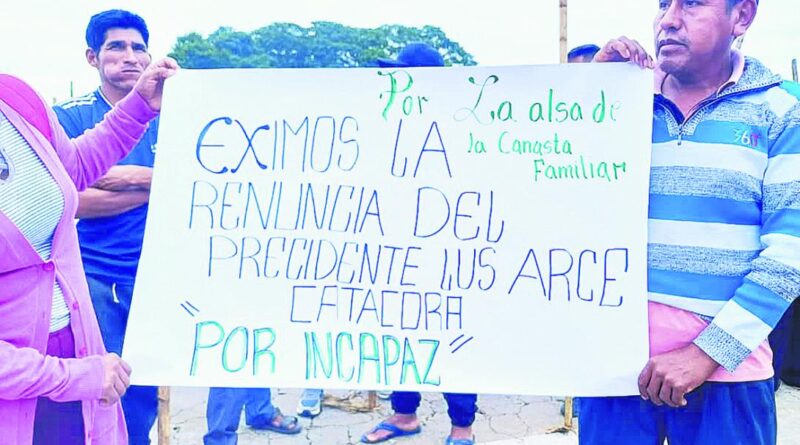 Por La alsa de
la Canasta
Familiar
EXIMOS LA
RENUNCIA DEL
PRECIDENTE LUS ARCE
CATACORA
"POR INCAPAZ"